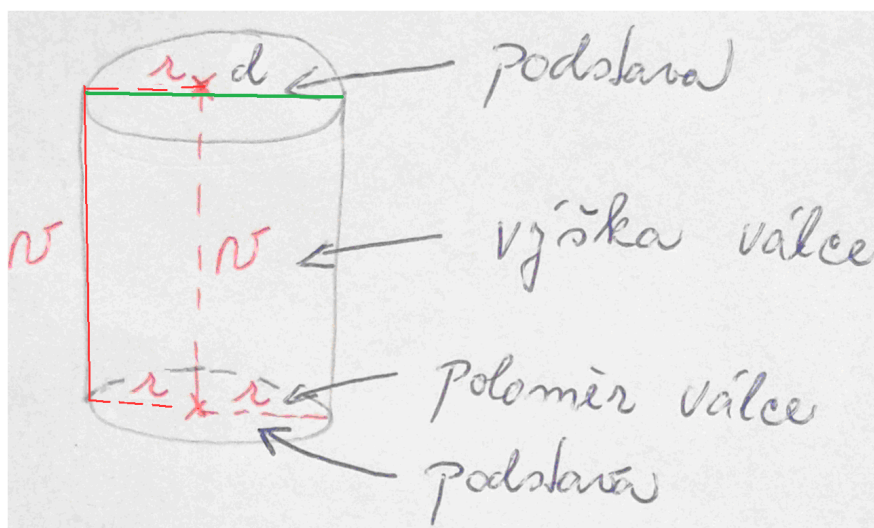 r d podstava
v v výška válce
r r poloměr válce
podstava